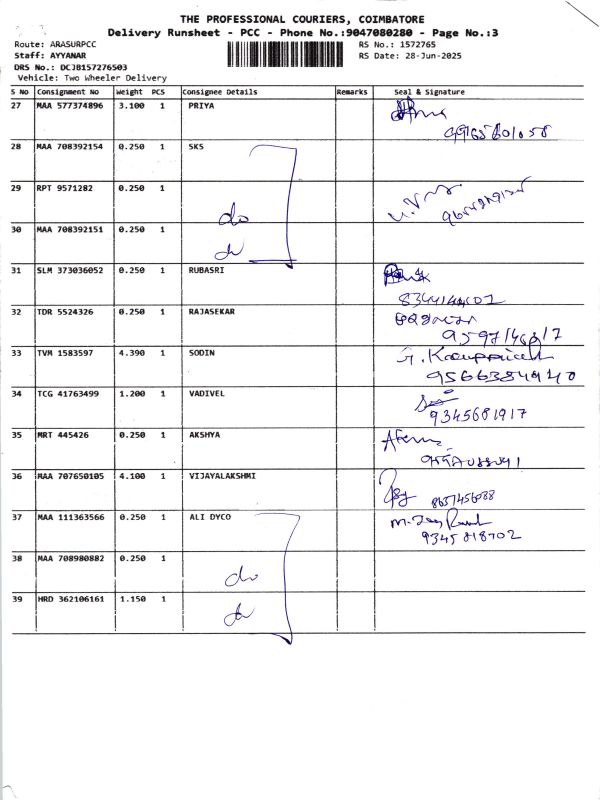 THE PROFESSIONAL COURIERS, COIMBATORE
Delivery Runsheet - PCC - Phone No.:9047080280 - Page No.:3
Route: ARASURPCC
RS No.: 1572765
Staff: AYYANAR
RS Date: 28-Jun-2025
DRS No.: DCJB157276503
Vehicle: Two Wheeler Delivery
S No Consignment No Weight PCS Consignee Details Remarks Seal & Signature
27 MAA 577374896 3.100 1 PRIYA
28 MAA 708392154 0.250 1 SKS
29 RPT 9571282 0.250 1
do
30 MAA 708392151 0.250 1
do
31 SLM 373036052 0.250 1 RUBASRI
32 TDR 5524326 0.250 1 RAJASEKAR
33 TVM 1583597 4.390 1 SODIN
9566384940
34 TCG 41763499 1.200 1 VADIVEL
9345681917
35 MRT 445426 0.250 1 AKSHYA
36 MAA 707650105 4.100 1 VIJAYALAKSHMI
37 MAA 111363566 0.250 1 ALI DYCO
9345818702
38 MAA 708980882 0.250 1
do
39 HRD 362106161 1.150 1
do